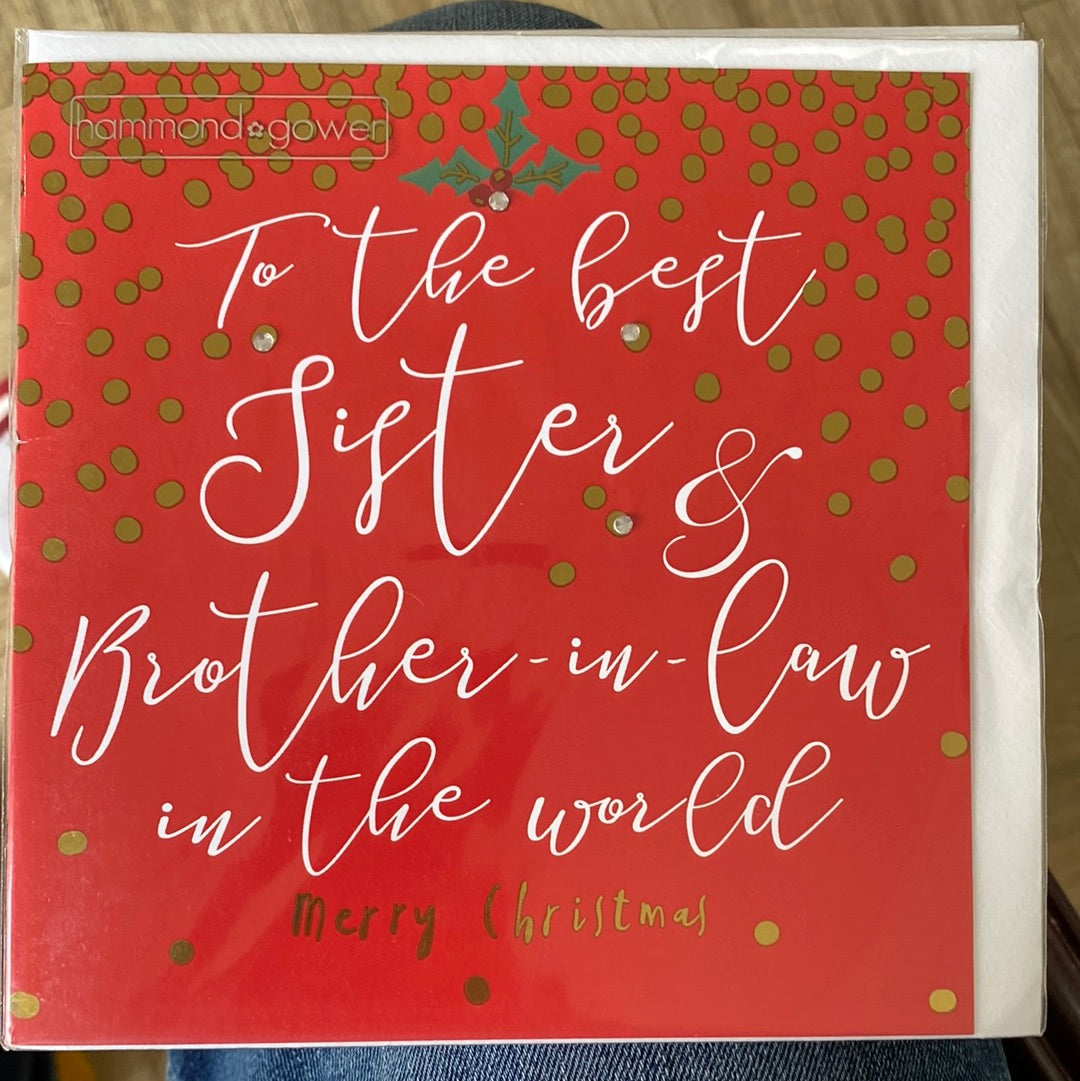 hammond gower
To the best
Sister &
Brother-in-law
in the world
Merry Christmas